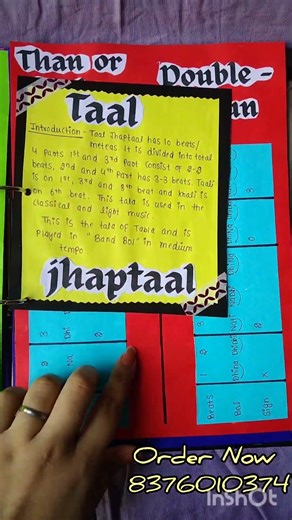 Than or Double -
un
Taal
Introduction - Taal Jhaptaal has 10 beats/
meteas. It is divided into total
4 parts 1st and 3rd part consist of 2-2
beats, 2nd and 4th part has 3-3 beats. Taali
is on 1st, 3rd and 8th beat and khali is
on 6th beat. This tala is used in the
classical and light music.
This is the tala of Table and is
played in "Band Bol" in medium
tempo.
jhaptaal
Beats
Bol
Sign
Order Now
8376010374
InShot